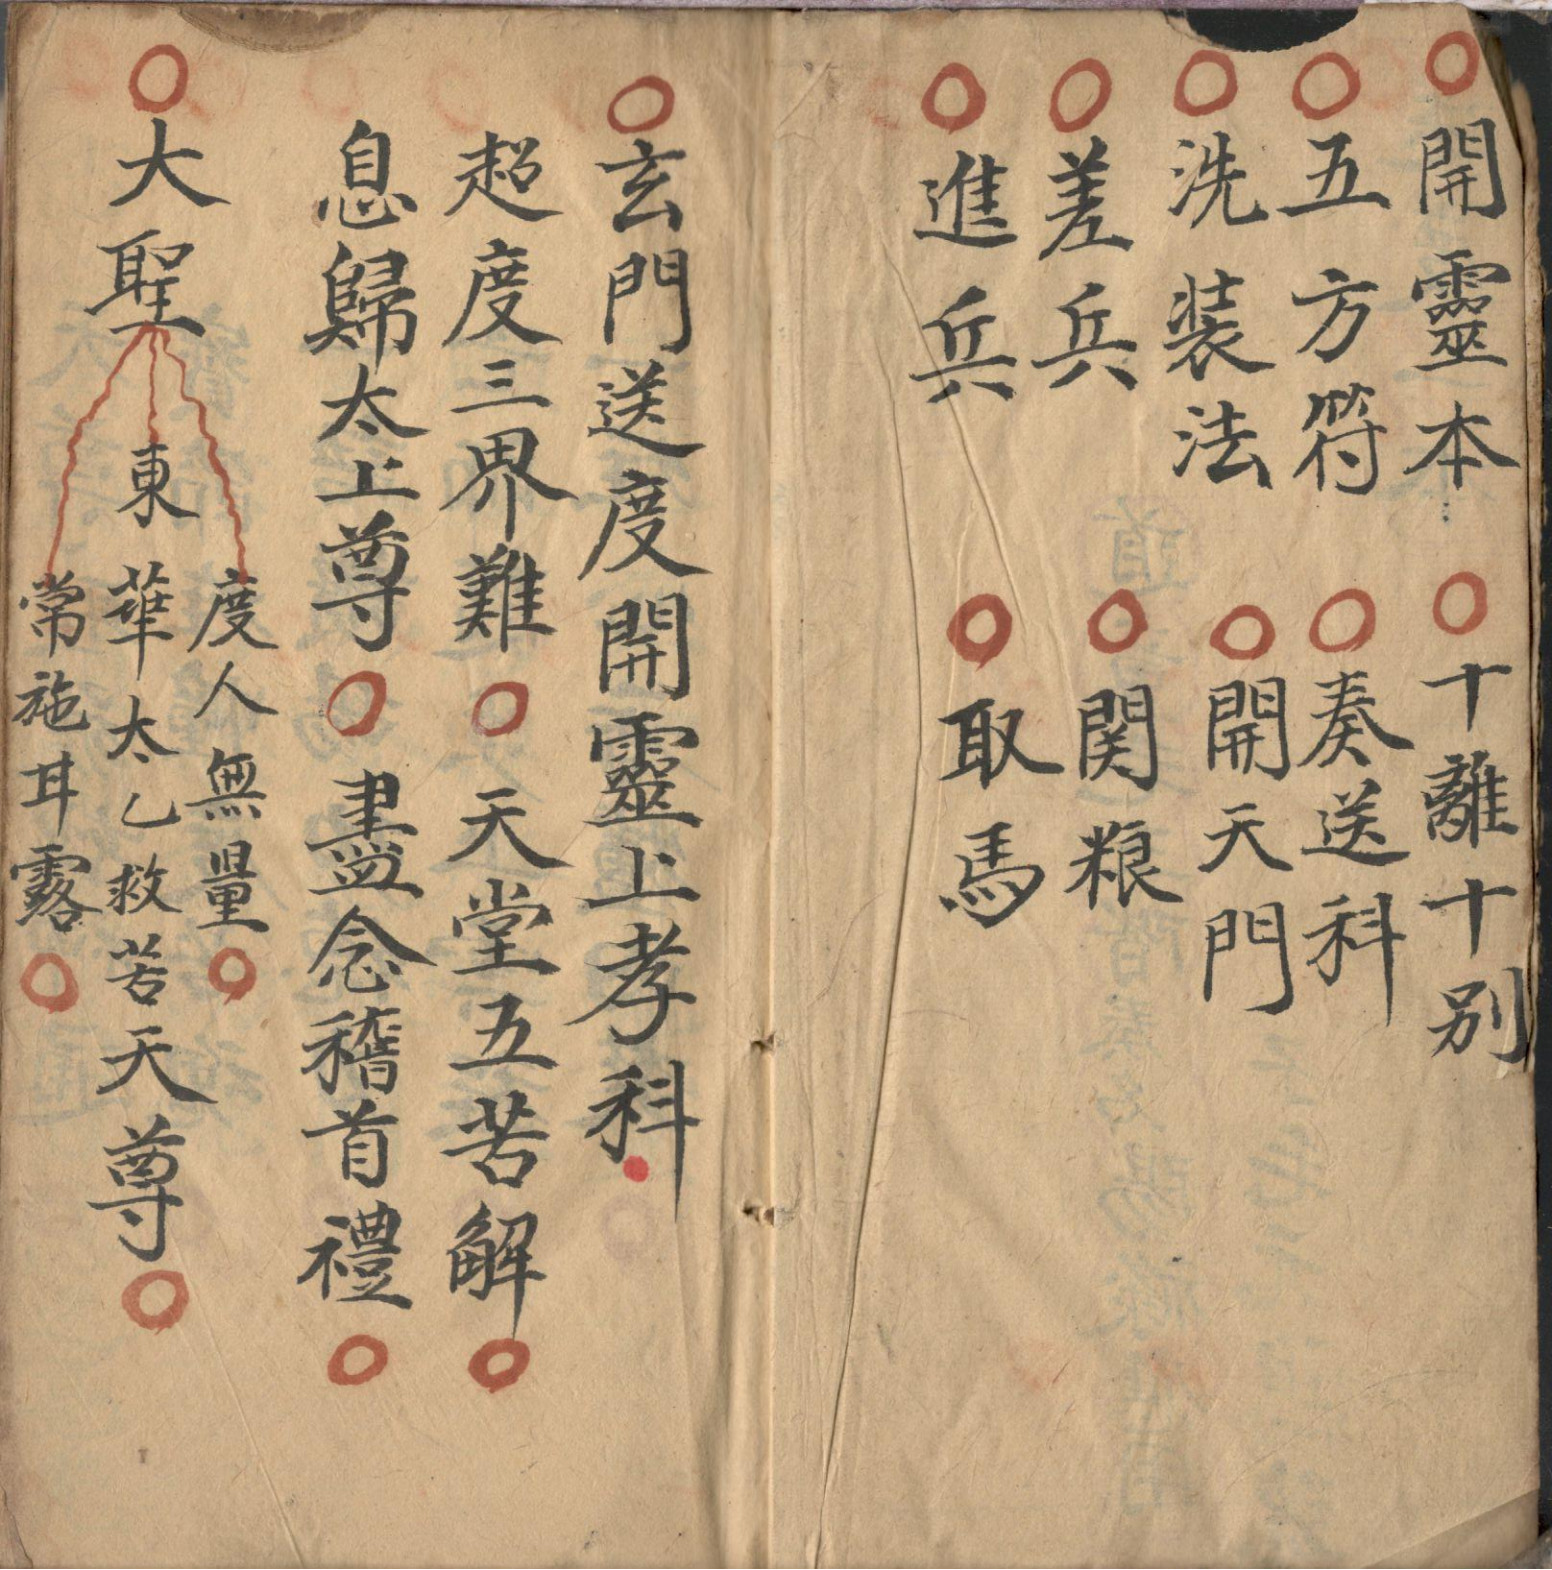 ○開靈本 ○十離十別
○五方符 ○奏送科
○洗裝法 ○開天門
○差兵 ○関粮
○進兵 ○取馬
○玄門送度開靈上孝科
超度三界難○天堂五苦解○
息歸太上尊○盡念稽首禮○
○大聖
度人無量○
東華太乙救苦天尊○
常施耳露○